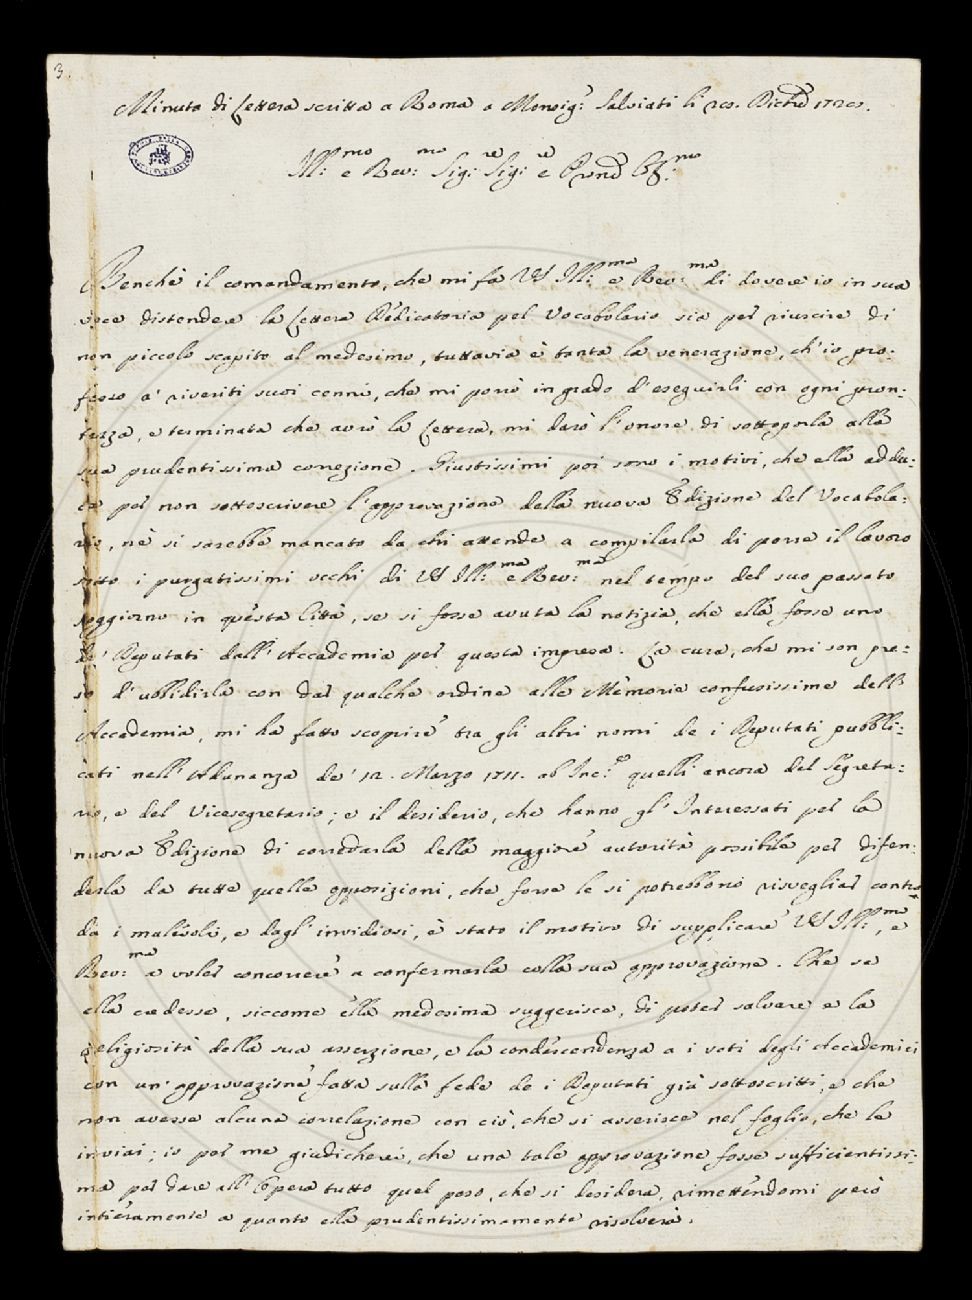 3.
Minuta di Lettera scritta a Roma a Monsig.r Salviati li 20. Dicbre 1728.
Ill:mo e Rev:mo Sig:re Sig:re e Pron Col:mo
Benchè il comandamento, che mi fa VS Ill:ma e Rev:ma di dovere io in sua
vece distendere la Lettera Dedicatoria pel Vocabolario sia per riuscire di
non piccolo scapito al medesimo, tuttavia è tanta la venerazione, ch'io pro-
fesso a' riveriti suoi cenni, che mi porrò in grado d'eseguirli con ogni pron-
tezza, e terminata che avrò la Lettera, mi darò l'onore di sottoporla alla
sua prudentissima correzione. Giustissimi poi sono i motivi, che ella addu-
ce per non sottoscrivere l'approvazione della nuova Edizione del Vocabola-
rio, nè si sarebbe mancato da chi attende a compilarla di porre il lavoro
sotto i purgatissimi occhi di VS Ill:ma e Rev:ma nel tempo del suo passato
soggiorno in questa Città, se si fosse avuta la notizia, che ella fosse uno
de' Deputati dall'Accademia per questa impresa. La cura, che mi son pre-
so d'ubbidirla con dar qualche ordine alle Memorie confusissime dell'
Accademia, mi ha fatto scoprire tra gli altri nomi de i Deputati pubbli-
cati nell'Adunanza de' 12. Marzo 1711. ab Inc:e quelli ancora del Segreta-
rio, e del Vicesegretario; e il desiderio, che hanno gl'Interessati per la
nuova Edizione di corredarla della maggiore autorità possibile per difen-
derla da tutte quelle opposizioni, che forse le si potrebbono risvegliar contro
da i malevoli, e dagl'invidiosi, è stato il motivo di supplicare VS Ill:ma, e
Rev:ma a voler concorrere a confermarla colla sua approvazione. Che se
ella credesse, siccome ella medesima suggerisce, di poter salvare e la
religiosità della sua asserzione, e la condescendenza a i voti degli Accademici
con un'approvazione fatta sulla fede de i Deputati già sottoscritti, e che
non avesse alcuna correlazione con ciò, che si asserisce nel foglio, che le
inviai; io per me giudicherei, che una tale approvazione fosse sufficientissi-
ma per dare all'Opera tutto quel peso, che si desidera, rimettendomi però
intieramente a quanto ella prudentissimamente risolverà.